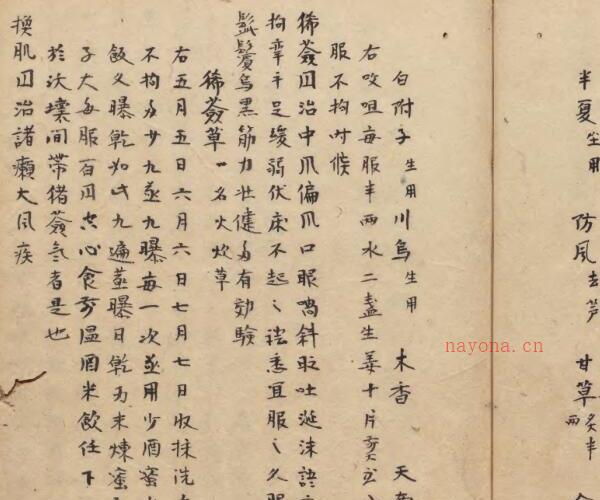 半夏生用 防風去芦 甘草炙半兩
白附子生用 川烏生用 木香 天
右㕮咀每服半兩水二盞生姜十片煎至
服不拘时候
豨薟囬治中爪偏爪口眼喎斜㕵吐涎沫語
拘挛手足緩弱伏床不起〻疾悉宜服〻久服
髭鬢烏黑筋力壮健多有効驗
豨薟草一名火炊草
右五月五日六月六日七月七日收採洗
不拘多少九蒸九曝每一次蒸用少酒蜜
飯又曝乾如此九遍蒸曝日乾为末煉蜜
子大每服百囬空心食前温酒米飲任下
於沃壤间带猪薟气者是也
換肌囬治諸癩大风疾
nayona.cn